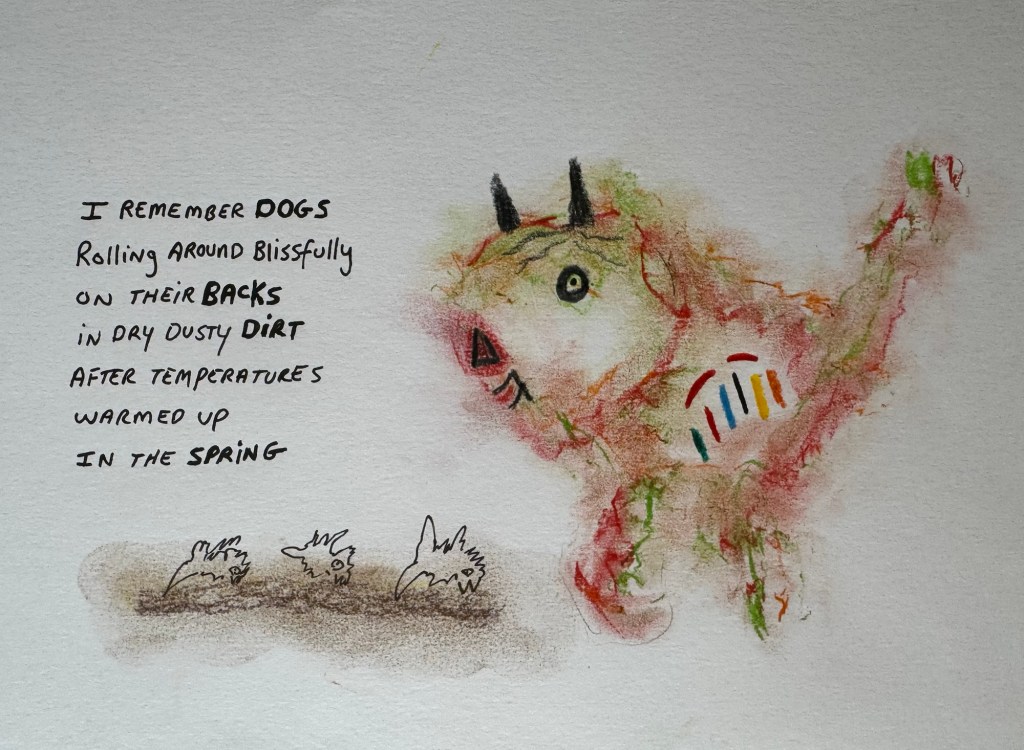 I REMEMBER DOGS
Rolling AROUND Blissfully
ON THEIR BACKS
iN DRY DUSTY DiRT
AFTER TEMPERATURES
WARMED UP
IN THE SPRiNG